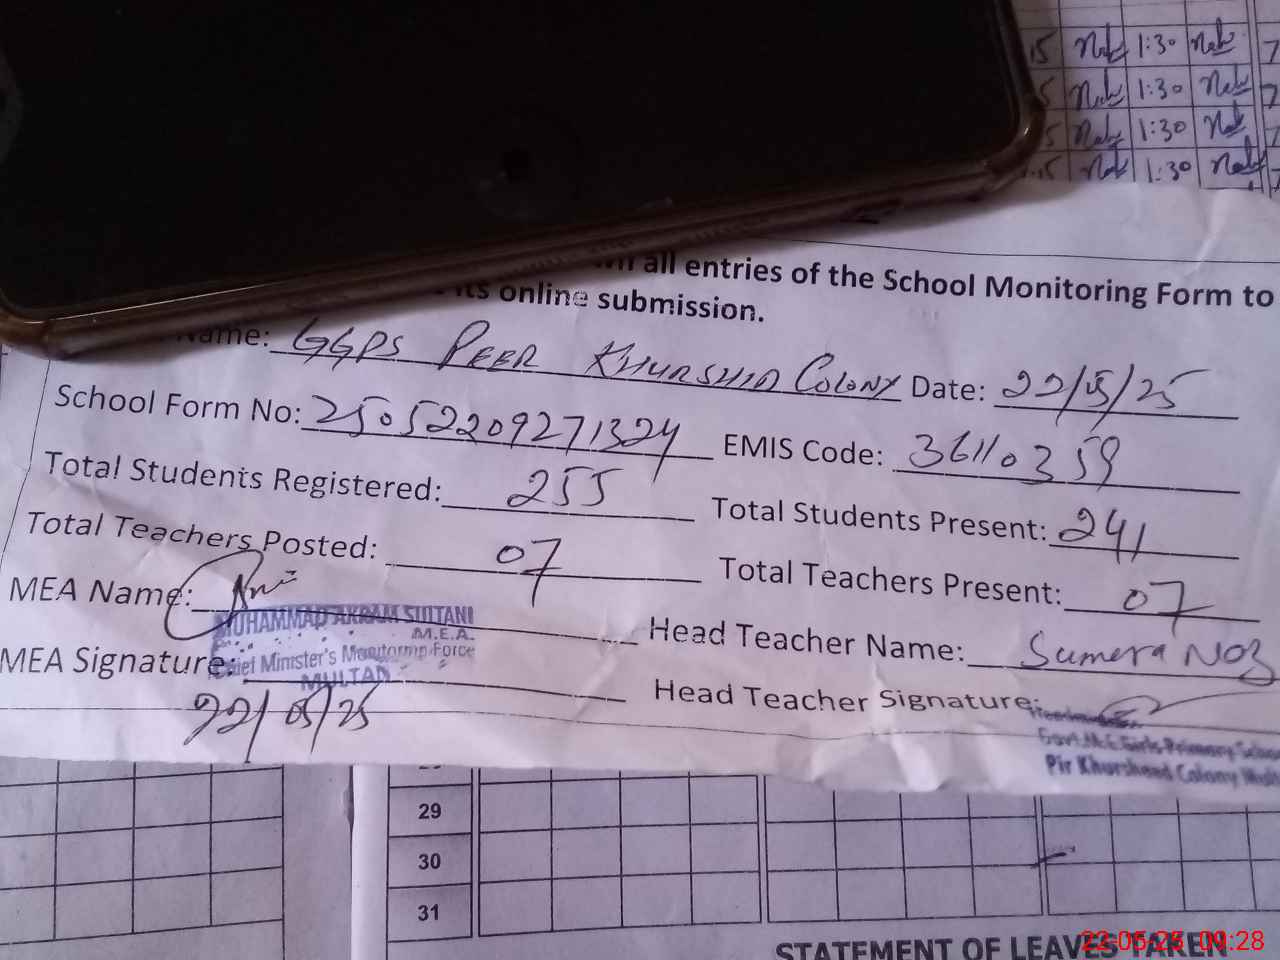 15 1:30
5 1:30
5 1:30
1:30
all entries of the School Monitoring Form to
its online submission.
Name: GGPS PEER KHURSHID COLONY Date: 22/5/25
School Form No: 25052209271324 EMIS Code: 36110359
Total Students Registered: 255 Total Students Present: 241
Total Teachers Posted: 07 Total Teachers Present: 07
MEA Name: Head Teacher Name: Sumera
MUHAMMAD AKRAM SULTANI
M.E.A.
Chief Minister's Monitoring Force
MULTAN
MEA Signature: Head Teacher Signature:
22/05/25
Govt. M.C. Girls Primary School
Pir Khursheed Colony
29
30
31
STATEMENT OF LEAVES TAKEN
22-05-25 09:28